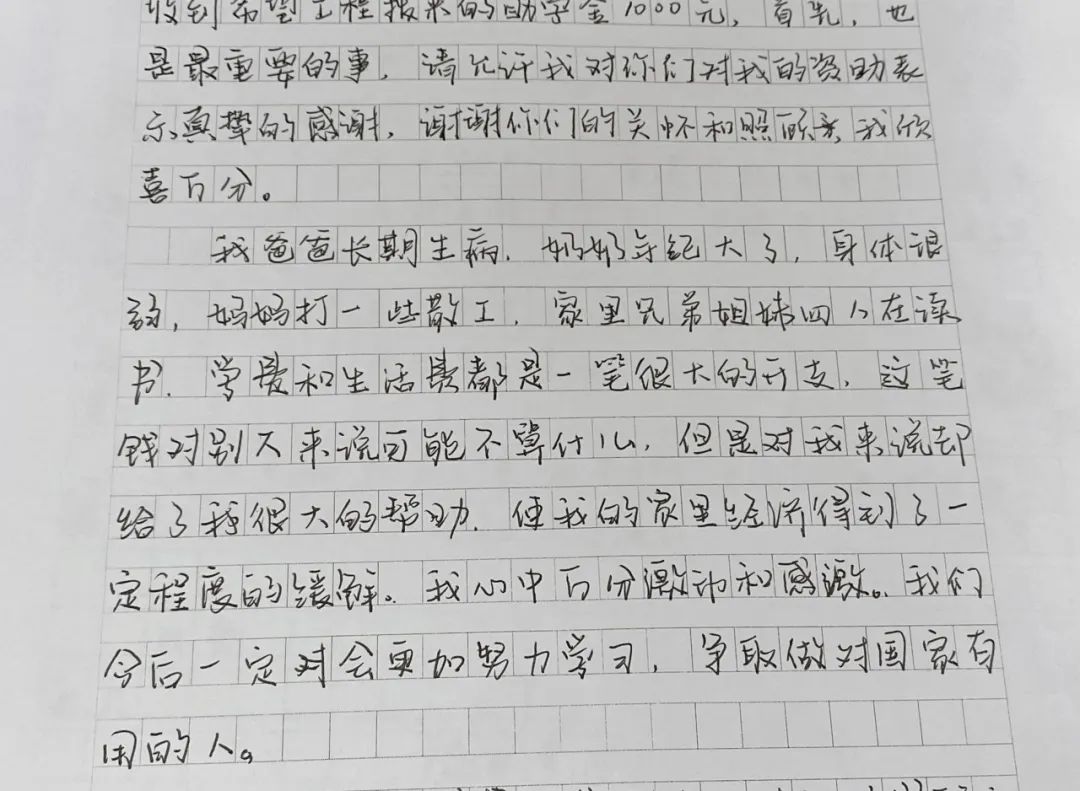 收到希望工程拨来的助学金1000元,首先,也
是最重要的事,请允许我对你们对我的资助表
示真挚的感谢,谢谢你们的关怀和照顾,我欣
喜万分。
我爸爸长期生病,奶奶年纪大了,身体很
弱,妈妈打一些散工,家里兄弟姐妹四人在读
书,学费和生活费都是一笔很大的开支,这笔
钱对别人来说可能不算什么,但是对我来说却
给了我很大的帮助,使我的家里经济得到了一
定程度的缓解。我心中百分激动和感激。我们
今后一定对会更加努力学习,争取做对国家有
用的人。